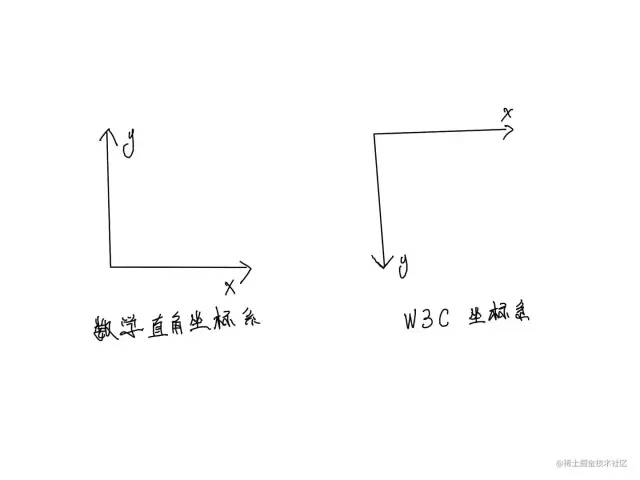 y
x
数学直角坐标系
x
y
W3C 坐标系
@稀土掘金技术社区